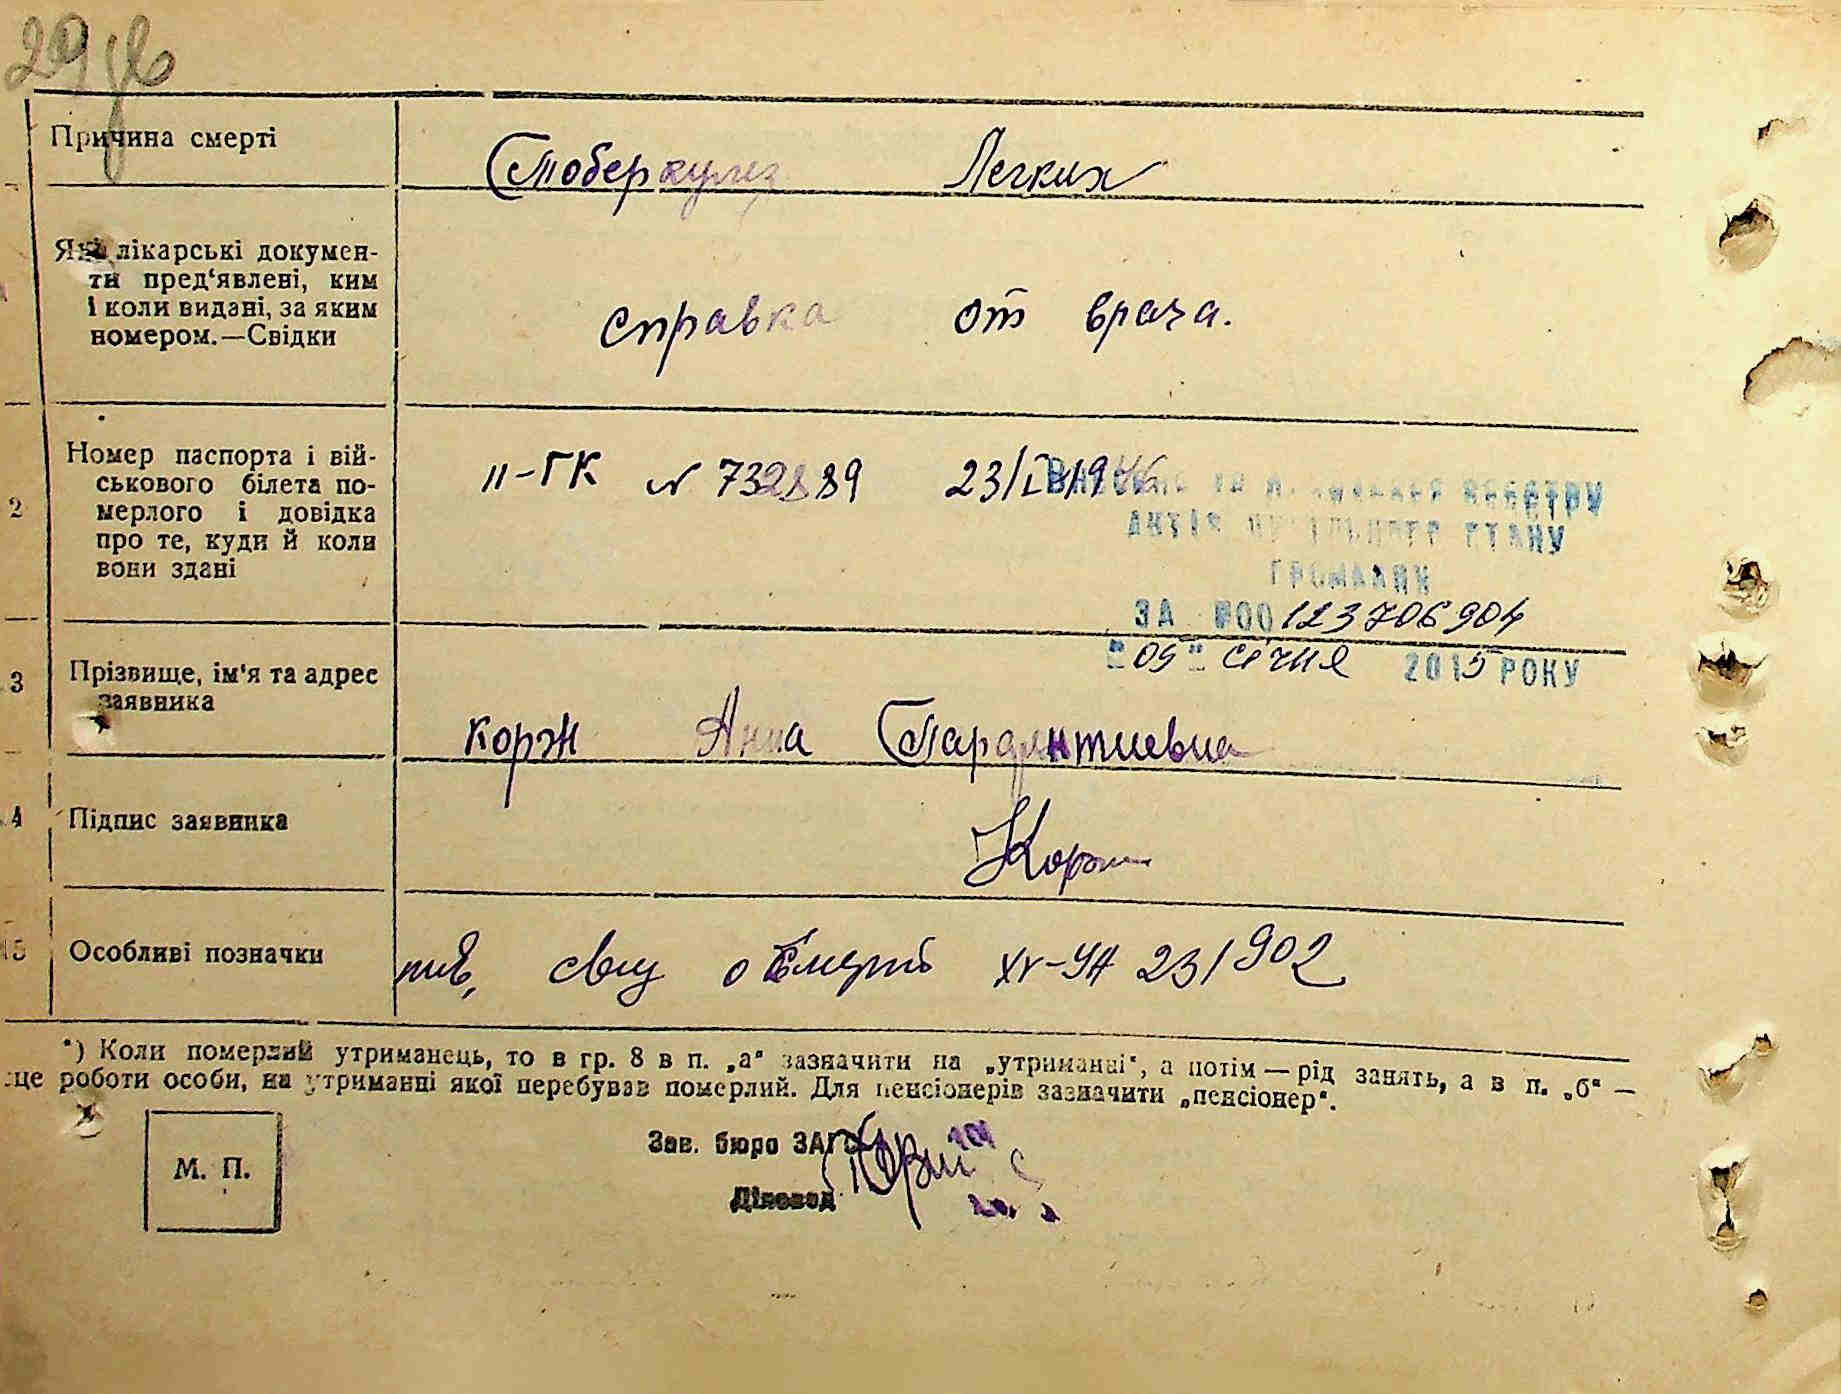 29
Причина смерті
Тоберкулез Легких
Які лікарські докумен-
ти пред'явлені, ким
і коли видані, за яким
номером.—Свідки
справка от врача.
2
Номер паспорта і вій-
ськового білета по-
мерлого і довідка
про те, куди й коли
вони здані
II-ГК N 732889 23/
РЕЄСТРУ
АКТІВ ЦИВІЛЬНОГО СТАНУ
ГРОМАДЯН
ЗА №00123706904
"05" січня 2015 РОКУ
3
Прізвище, ім'я та адрес
заявника
Корж Анна Парфентиевна
4
Підпис заявника
Корж
15
Особливі позначки
о Смерті XV-УН 231902
*) Коли померлий утриманець, то в гр. 8 в п. „а" зазначити на „утриманні", а потім — рід занять, а в п. „б" —
це роботи особи, на утриманні якої перебував померлий. Для пенсіонерів зазначити „пенсіонер".
М. П.
Зав. бюро ЗАГС
Діловод